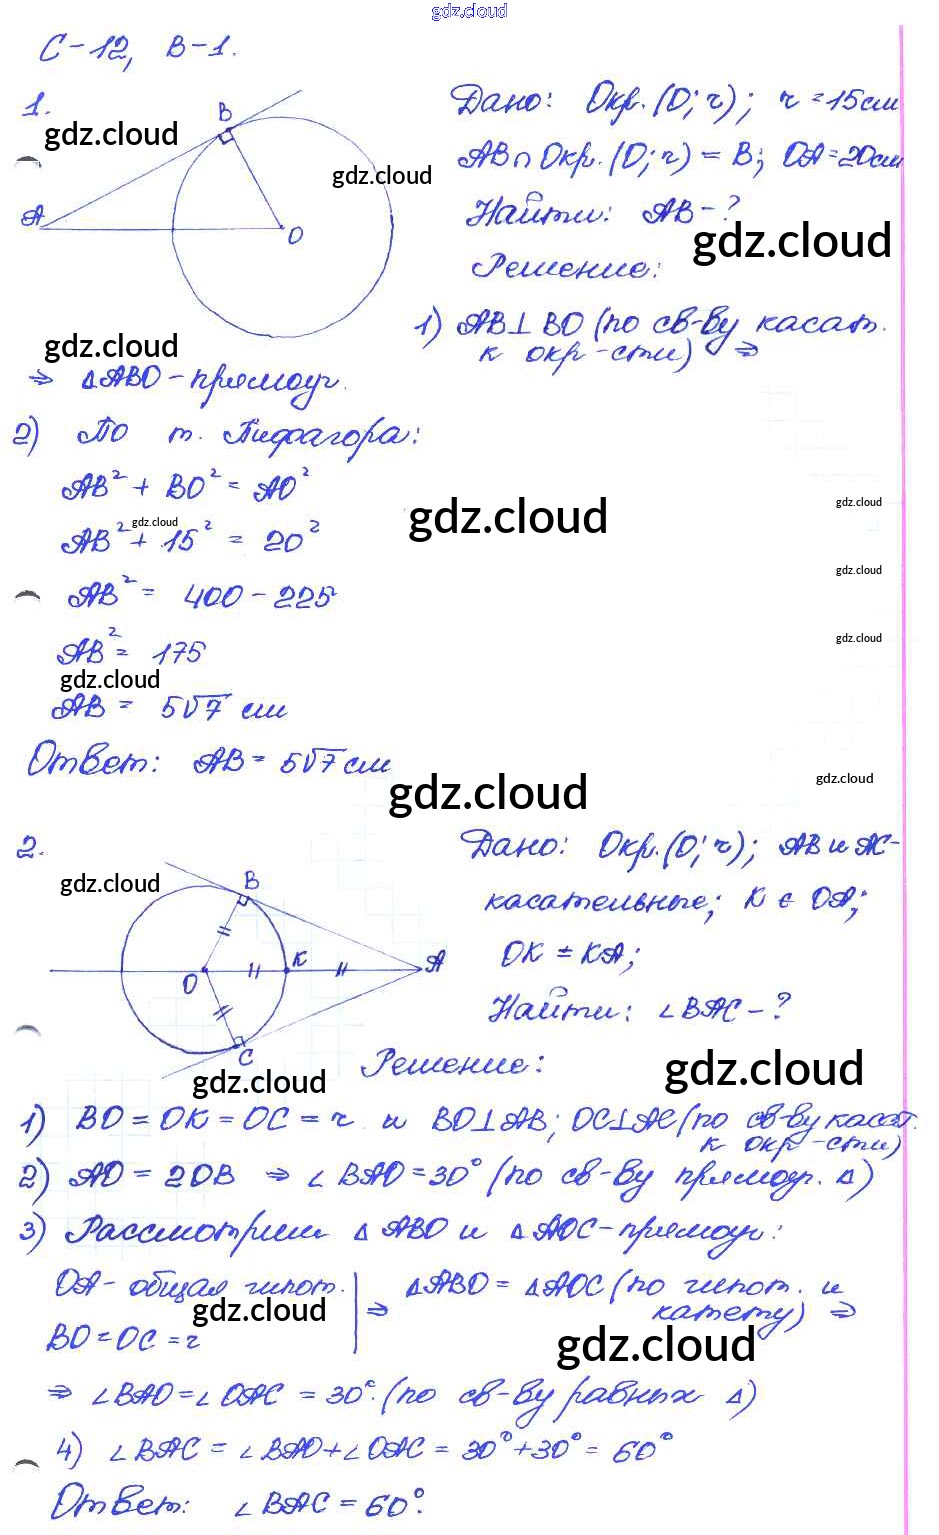 gdz.cloud
С-12, В-1.
1.
gdz.cloud
B
A
O
gdz.cloud
Дано: Окр.(O; r); r = 15см
AB∩Окр.(O; r) = B; OA=20см
Найти: AB-?
gdz.cloud
Решение:
1) AB⊥BO (по св-ву касат.
к окр-сти) ⇒
gdz.cloud
⇒ △ABO-прямоуг.
2) По т. Пифагора:
AB² + BO² = AO²
gdz.cloud
gdz.cloud
gdz.cloud
AB² + 15² = 20²
gdz.cloud
AB² = 400 - 225
gdz.cloud
AB² = 175
gdz.cloud
AB = 5√7 см
Ответ: AB = 5√7 см
gdz.cloud
gdz.cloud
2.
gdz.cloud
B
K
A
O
C
Дано: Окр.(O; r); AB и AC-
касательные; K ∈ OA;
OK = KA;
Найти: ∠BAC-?
Решение:
gdz.cloud
gdz.cloud
1) BO = OK = OC = r и BO⊥AB; OC⊥AC (по св-ву касат.
к окр-сти)
2) AO = 2OB ⇒ ∠BAO = 30° (по св-ву прямоуг. △)
3) Рассмотрим △ABO и △AOC-прямоуг:
OA-общая гипот.
gdz.cloud
BO = OC = r
⇒ △ABO = △AOC (по гипот. и
катету) ⇒
gdz.cloud
⇒ ∠BAO = ∠OAC = 30°. (по св-ву равных △)
4) ∠BAC = ∠BAO+∠OAC = 30°+30° = 60°
Ответ: ∠BAC = 60°.